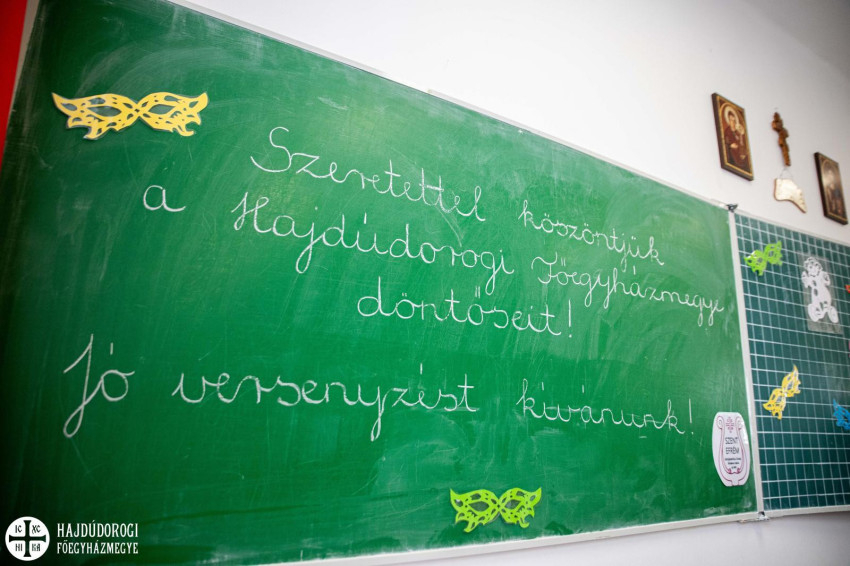 Szeretettel köszöntjük
a Hajdúdorogi Főegyházmegye
döntőseit!
Jó versenyzést kívánunk!
SZENT
EFRÉM
IC XC
NI KA
HAJDÚDOROGI
FŐEGYHÁZMEGYE